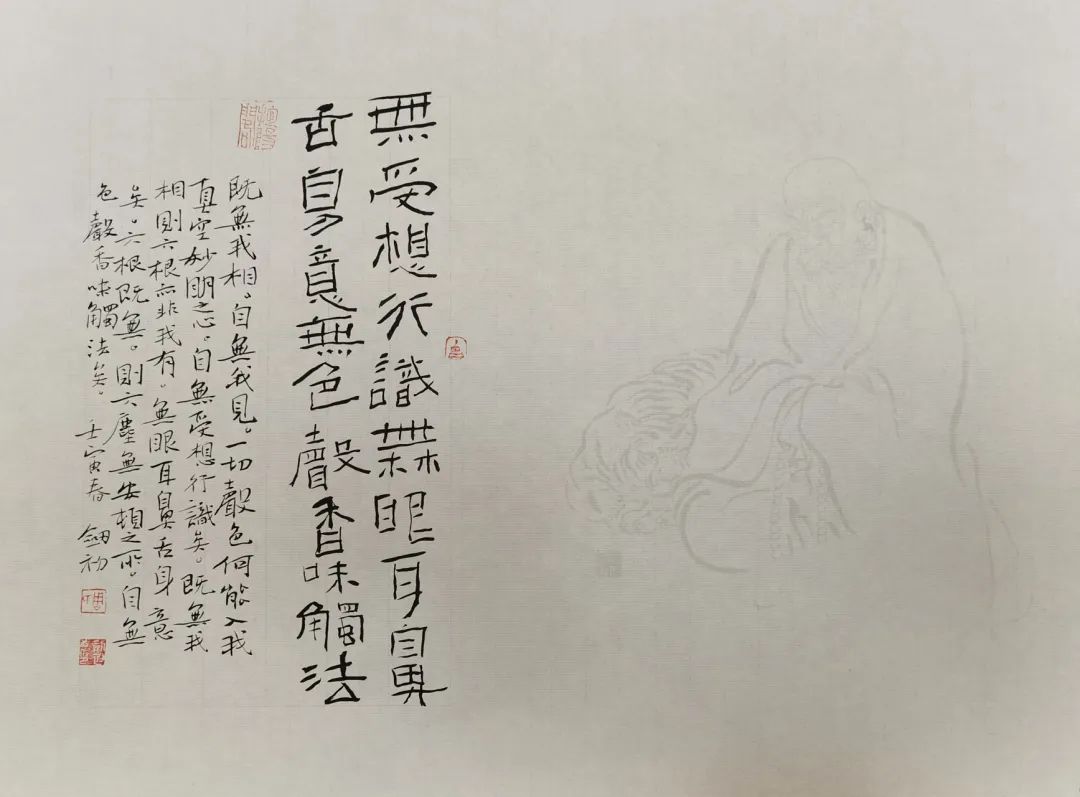 無受想行識無眼耳鼻
舌身意無色聲香味觸法
既無我相。自無我見。一切聲色何能入我
真空妙明之心。自無受想行識矣。既無我
相則六根亦非我有。無眼耳鼻舌身意
矣。六根既無。則六塵無安頓之所。自無
色聲香味觸法矣。壬寅春 劍初